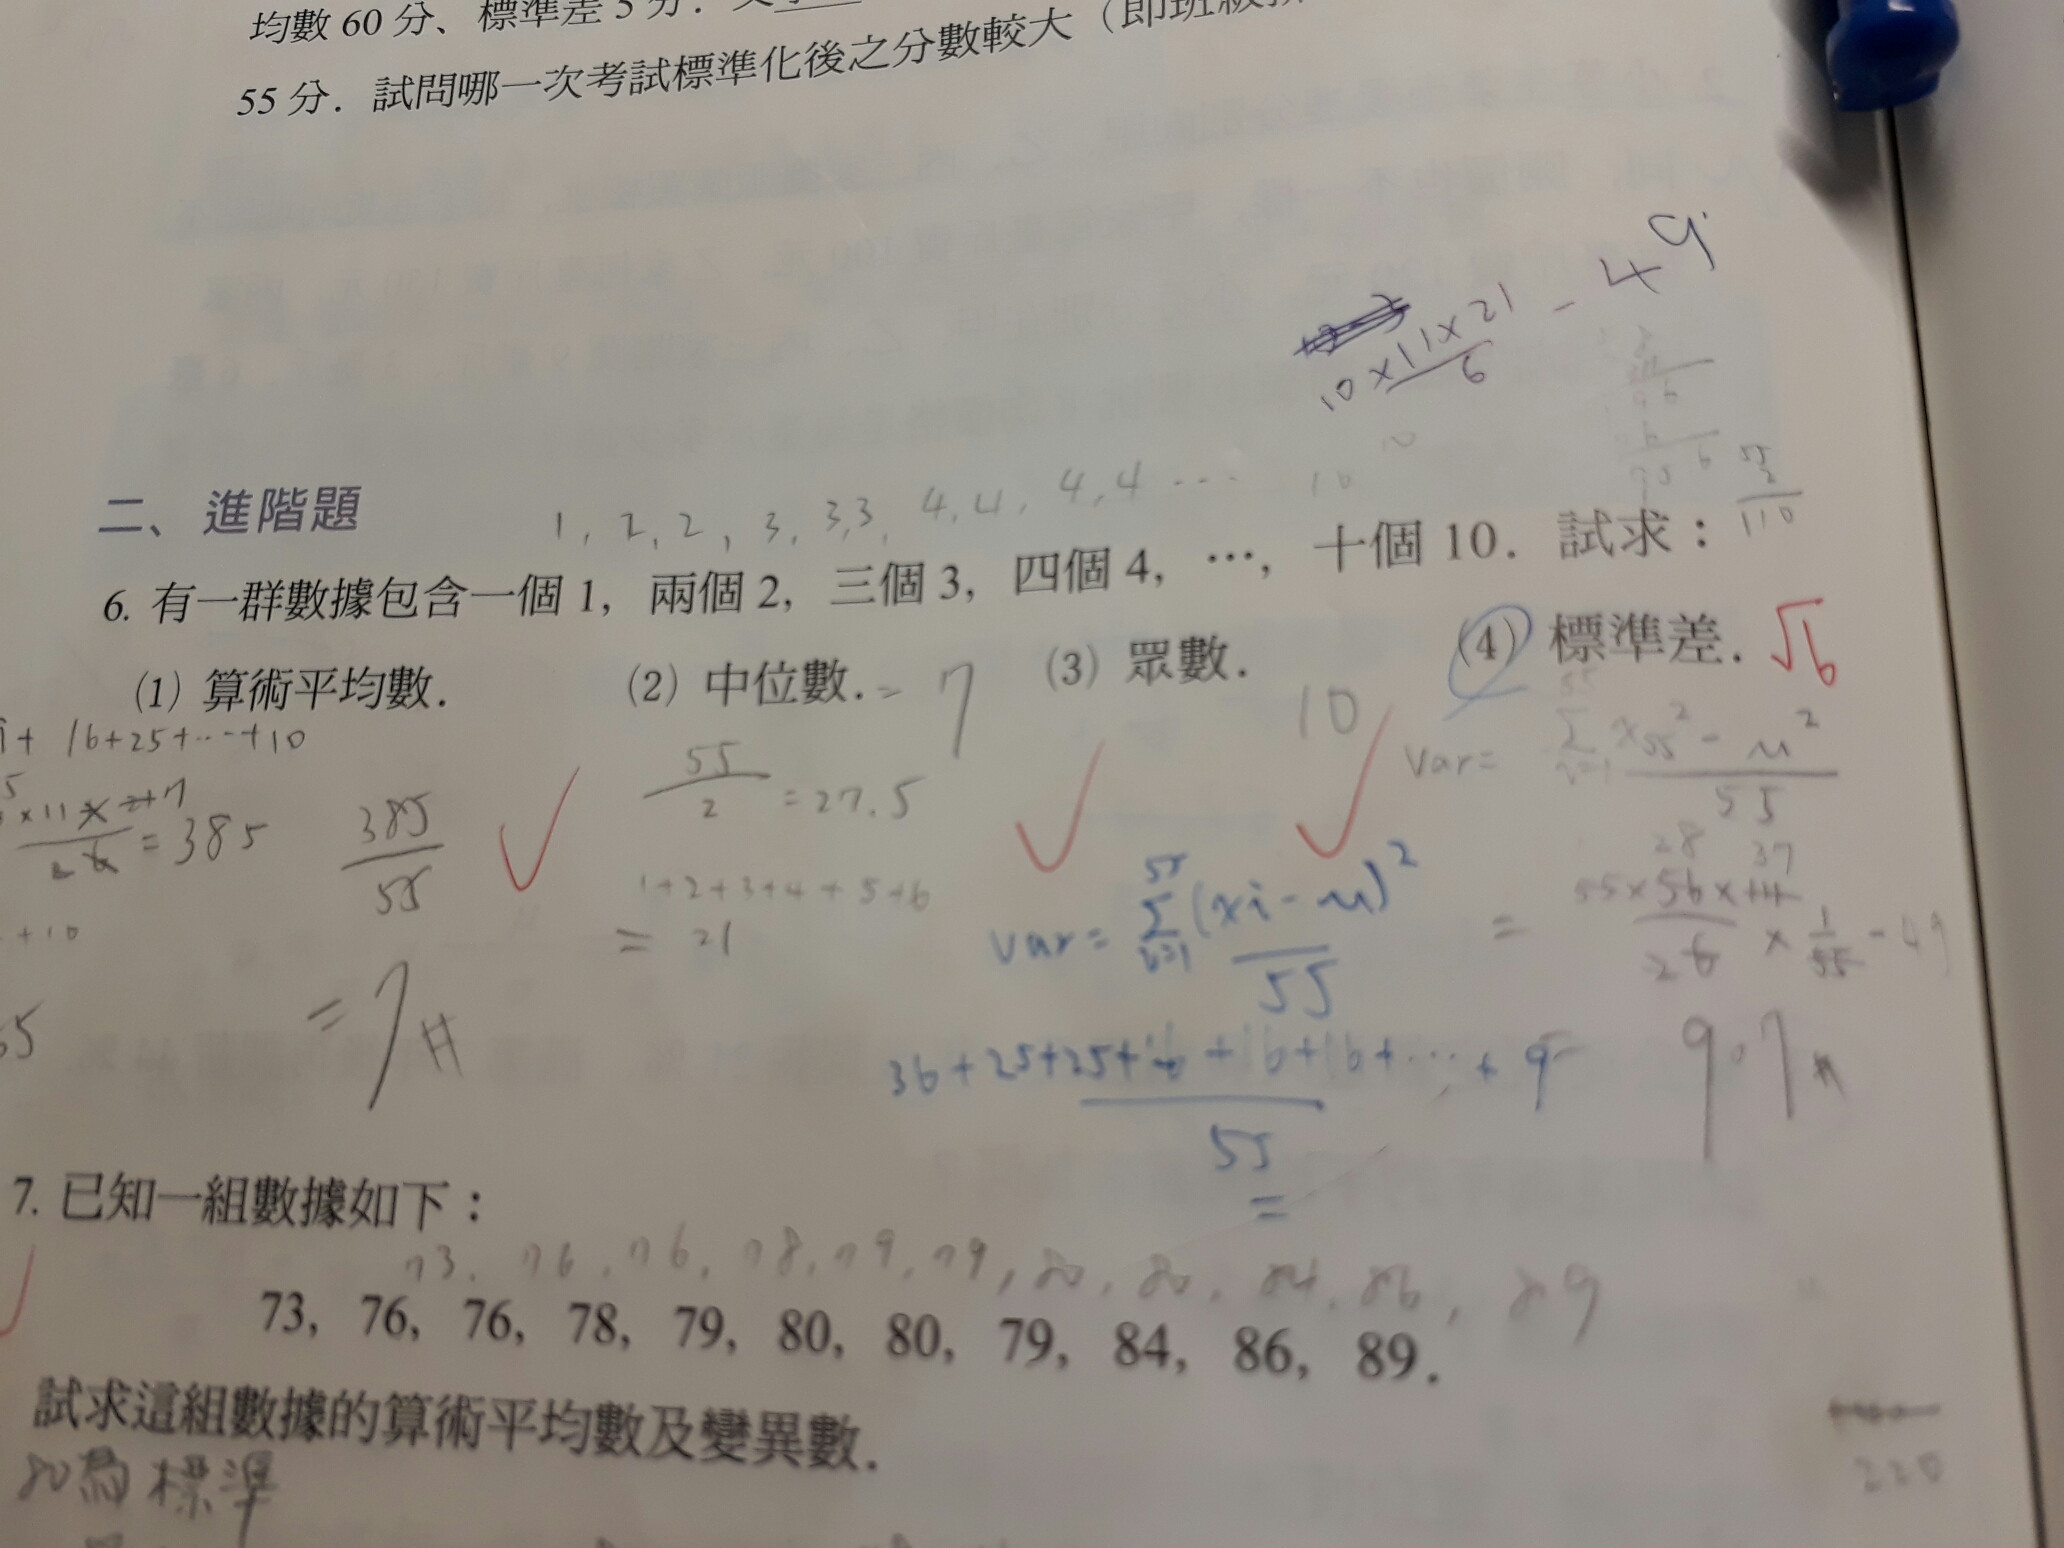 均數 60 分、標準差 5 分．
55 分．試問哪一次考試標準化後之分數較大（即班級
10×11×21/6 - 49
二、進階題
1, 2, 2, 3, 3, 3, 4, 4, 4, 4 ... 10
55
110
6. 有一群數據包含一個 1，兩個 2，三個 3，四個 4，…，十個 10．試求：
(1) 算術平均數． (2) 中位數． = 7 (3) 眾數． 10 (4) 標準差． √6
16+25+...+10
= 385
385/55
= 7 #
55/2 = 27.5
1+2+3+4+5+6
= 21
var = Σ x55² - u² / 55
var = 55 Σ i=1 (xi - u)² / 55
= 55×56× × 1/55 - 49
36+25+25+16+16+16+...+9 / 55
=
9.7 #
7. 已知一組數據如下：
73, 76, 76, 78, 79, 79, 80, 80, 84, 86, 89
73，76，76，78，79，80，80，79，84，86，89．
試求這組數據的算術平均數及變異數．
80為標準
220